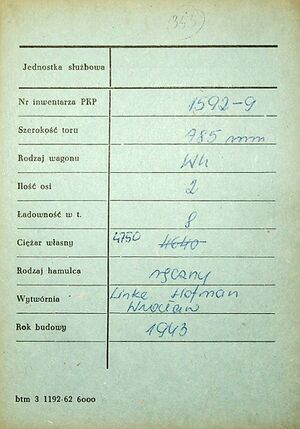 (345)
Jednostka służbowa
Nr inwentarza PKP 1592-9
Szerokość toru 785 mm
Rodzaj wagonu Wh
Ilość osi 2
Ładowność w t. 8
Ciężar własny 4750 4640
Rodzaj hamulca ręczny
Wytwórnia Linke Hofman
Wrocław
Rok budowy 1943
btm 3 1192-62 6000